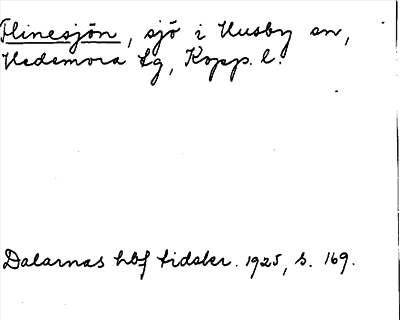 Flinesjön, sjö i Husby sn,
Hedemora tg, Kopp. l.
Dalarnas hbf tidskr. 1925, s. 169.